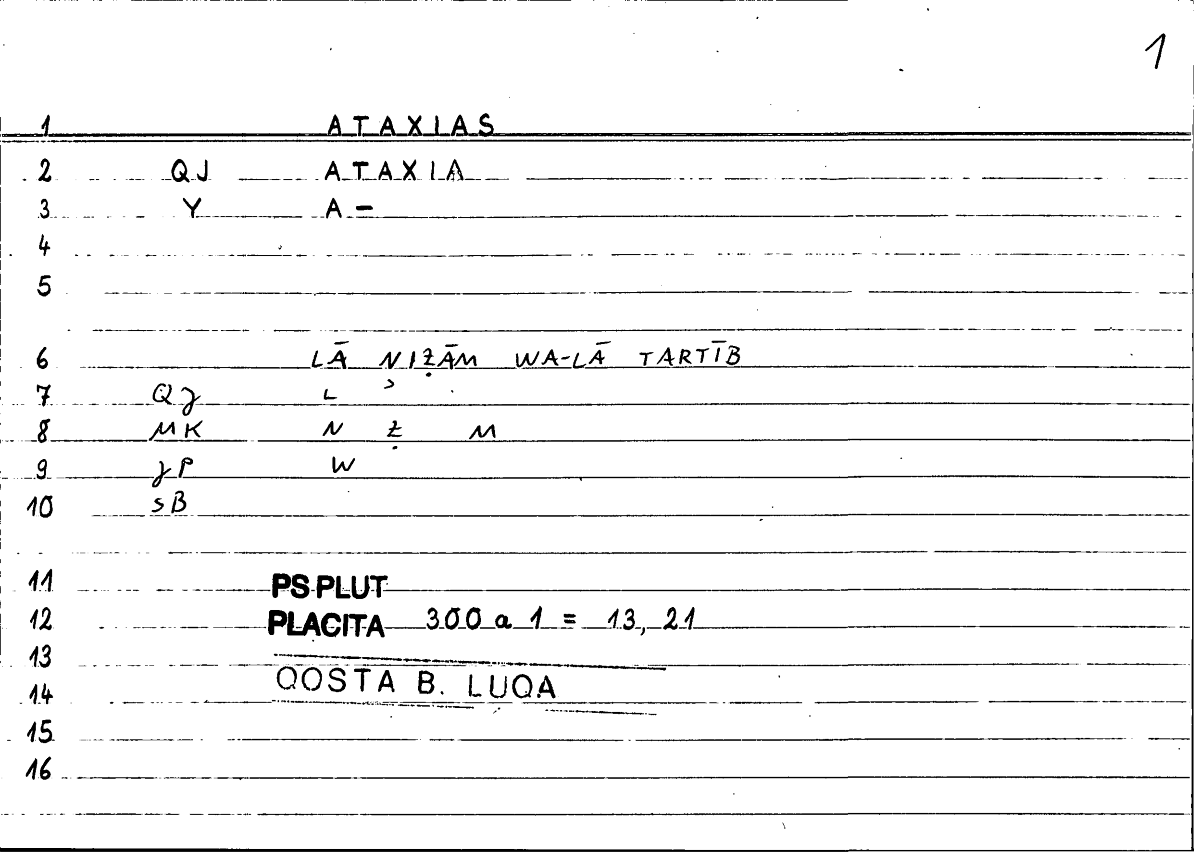 1
1 ATAXIAS
2 QJ ATAXIA
3 Y A-
4
5
6 LĀ NIẒĀM WA-LĀ TARTĪB
7 L
8 MK N Ẓ M
9 W
10 SB
11 PS.PLUT
12 PLACITA 300 a 1 = 13, 21
13
14 QOSTA B. LUQA
15
16